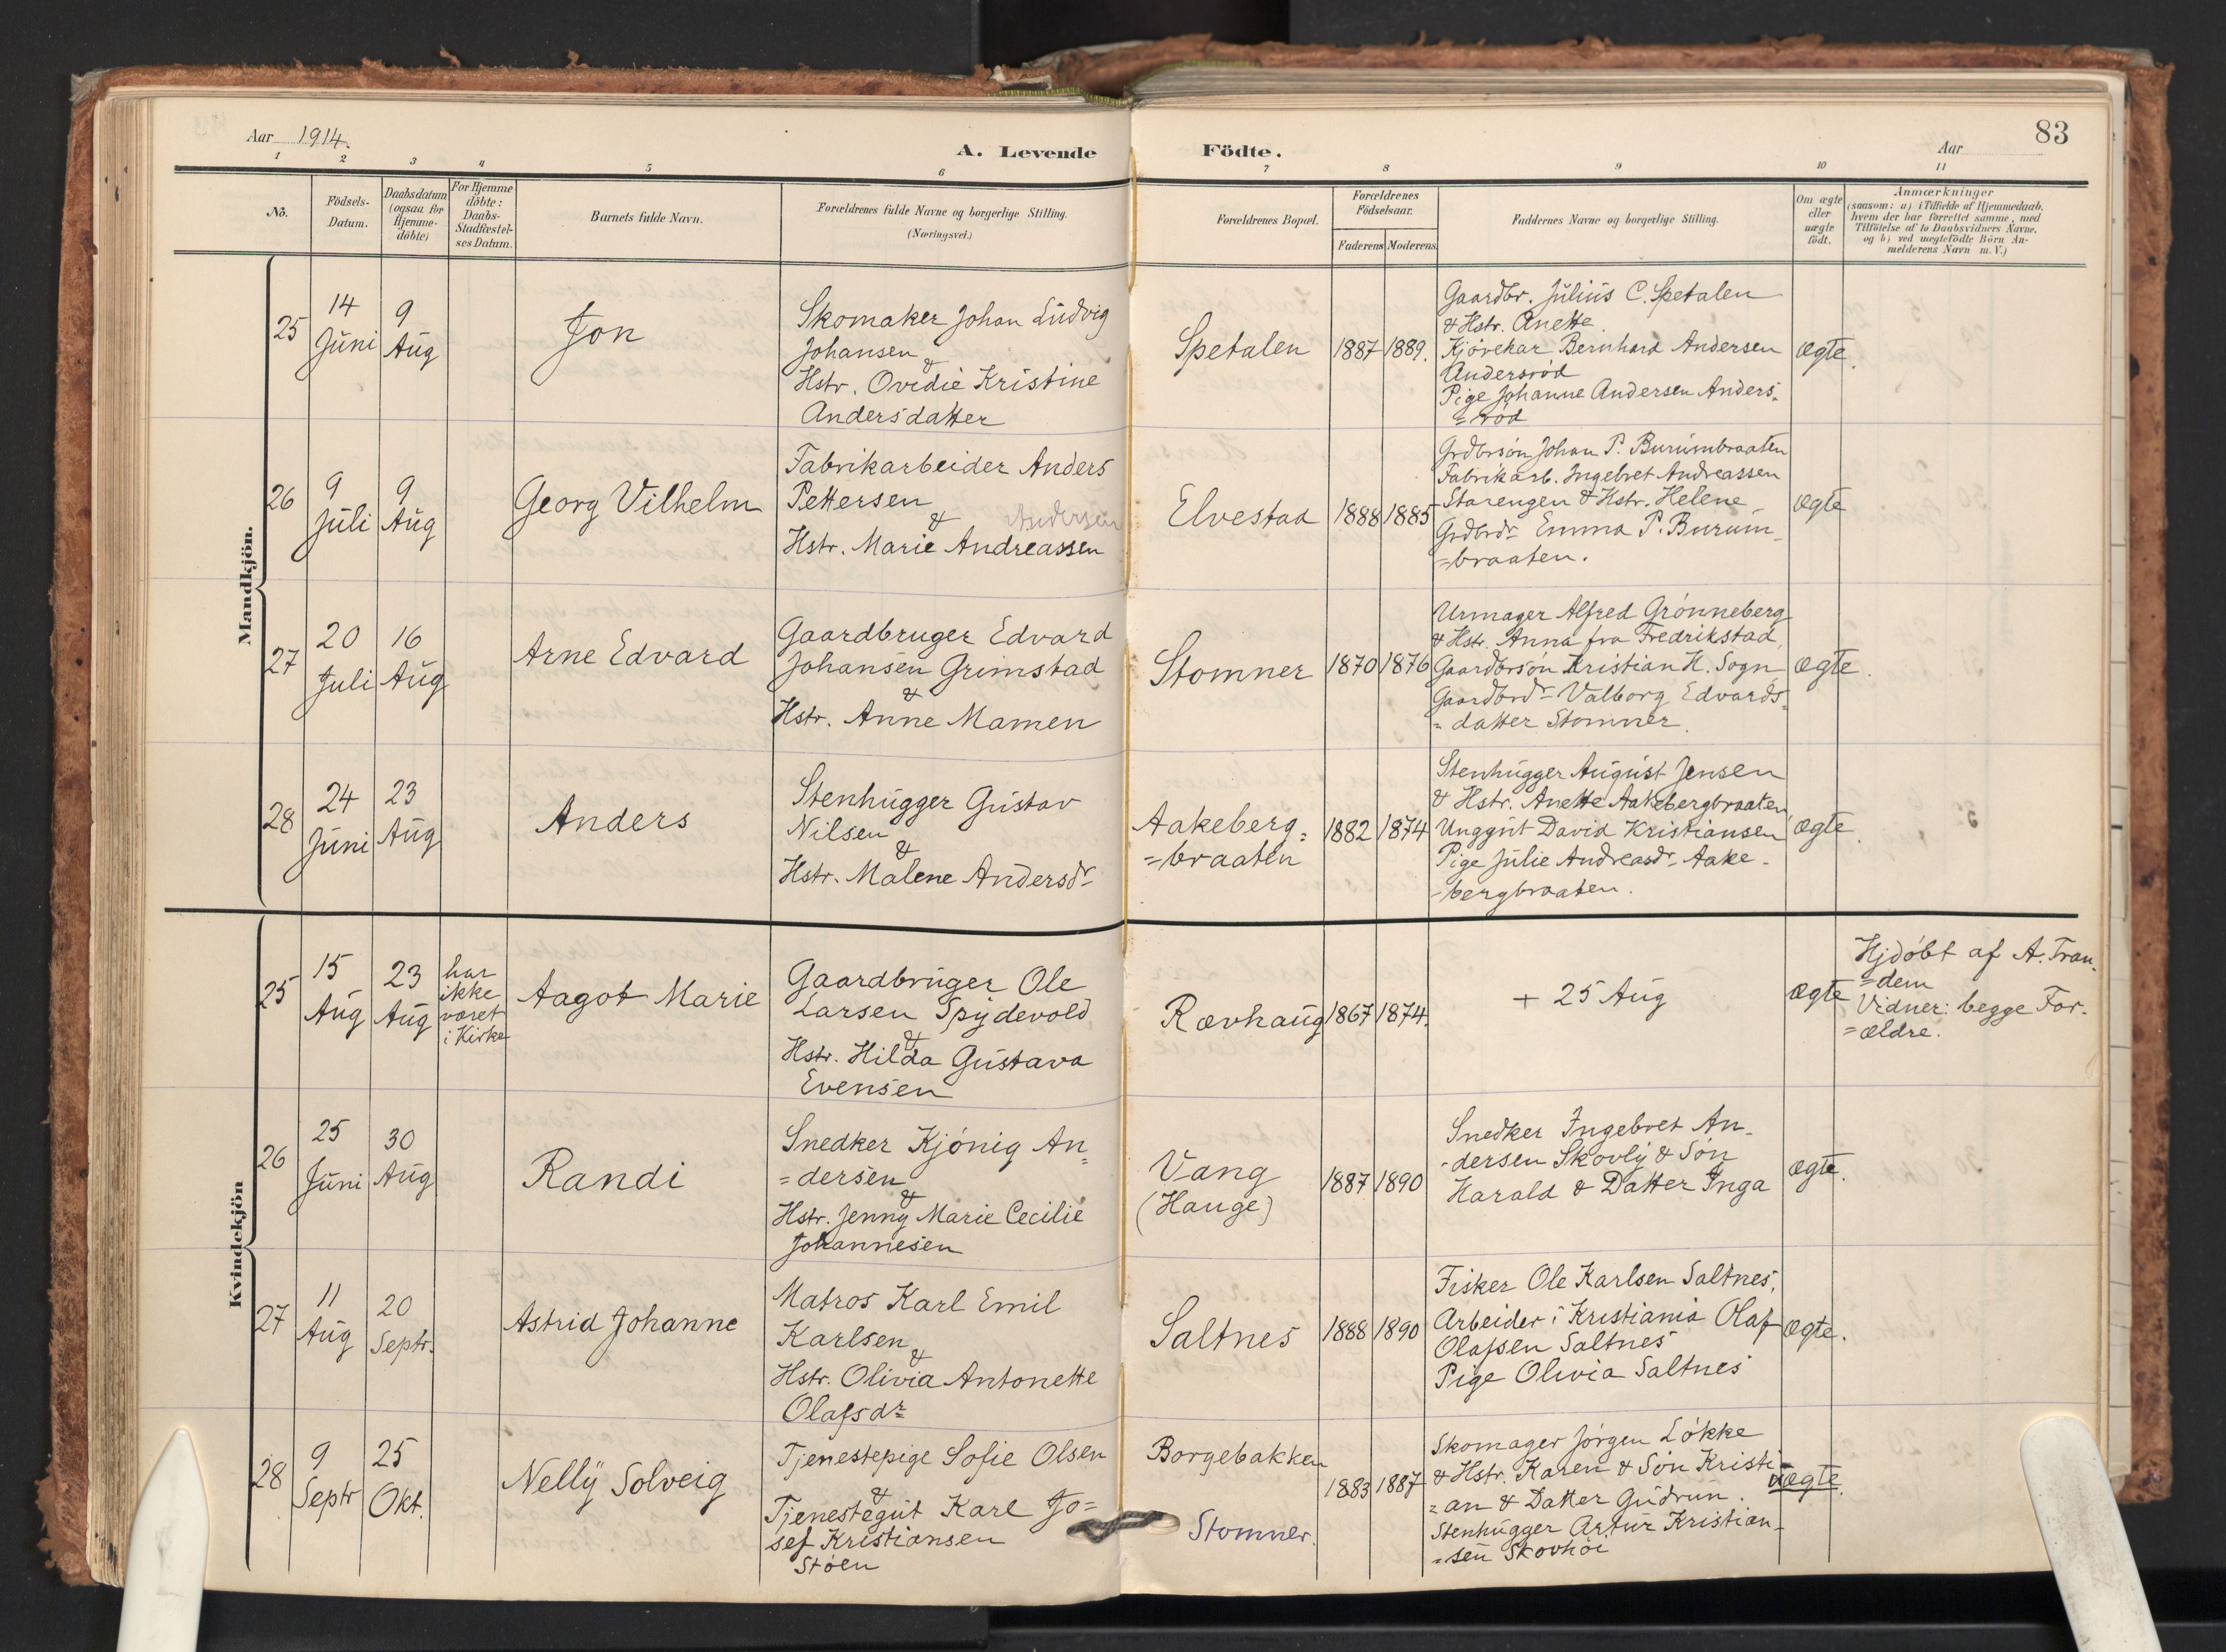 Aar 1914.
A. Levende Födte.
Aar
83
1 2 3 4 5 6 7 8 9 10 11
No.
Födsels-
Datum.
Daabsdatum
(ogsaa for
Hjemme-
döbte)
For Hjemme
döbte:
Daabs-
Stadfæstel-
ses Datum.
Barnets fulde Navn.
Forældrenes fulde Navne og borgerlige Stilling.
(Næringsvei.)
Forældrenes Bopæl.
Forældrenes
Födselsaar.
Faderens Moderens
Faddernes Navne og borgerlige Stilling.
Om ægte
eller
uægte
födt.
Anmærkninger
(saasom: a) i Tilfælde af Hjemmedaab,
hvem der har forrettet samme, med
Tilföielse af to Daabsvidners Navne,
og b) ved uægtefödte Börn An-
melderens Navn m. V.)
Mandkjön.
25
14
Juni
9
Aug
Jon
Skomaker Johan Ludvig
Johansen
&
Hstr. Ovidie Kristine
Andersdatter
Spetalen
1887
1889.
Gaardbr. Julius C. Spetalen
& Hstr. Anette
Kjörekar Bernhard Andersen
Andersröd
Pige Johanne Andersen Anders-
=röd
ægte.
26
9
Juli
9
Aug
Georg Vilhelm
Fabrikarbeider Anders
Pettersen
& Andersen
Hstr. Marie Andreassen
Elvestad
1888
1885
Grdbrsön Johan P. Burumbraaten
Fabrikarb. Ingebret Andreassen
Starengen & Hstr. Helene
Grdbrdr Emma P. Burum-
=braaten.
ægte
27
20
Juli
16
Aug
Arne Edvard
Gaardbruger Edvard
Johansen Grimstad
&
Hstr. Anne Mamen
Stomner
1870
1876
Urmager Alfred Grönneberg
& Hstr. Anna fra Fredrikstad,
Gaardbrsön Kristian H. Sogn
Gaardbrdr Valborg Edvards-
=datter Stomner.
ægte.
28
24
Juni
23
Aug
Anders
Stenhugger Gustav
Nilsen
&
Hstr. Malene Andersdr
Aakeberg=
=braaten
1882
1874
Stenhugger August Jensen
& Hstr. Anette Aakebergbraaten,
Unggut David Kristiansen
Pige Julie Andreasdr Aake-
-bergbraaten.
ægte.
Kvindekjön
25
15
Aug
23
Aug
har
ikke
været
i Kirke
Aagot Marie
Gaardbruger Ole
Larsen Spydevold
&
Hstr. Hilda Gustava
Evensen
Rævhaug
1867
1874.
+ 25 Aug
ægte
Hjdöbt af A. Tran-
=dem
Vidner: begge For-
=ældre.
26
25
Juni
30
Aug
Randi
Snedker Kjönig An=
=dersen
&
Hstr. Jenny Marie Cecilie
Johannesen
Vang
(Hauge)
1887
1890
Snedker Ingebret An-
-dersen Skovly & Sön
Harald & Datter Inga
ægte.
27
11
Aug
20
Septr.
Astrid Johanne
Matros Karl Emil
Karlsen
&
Hstr. Olivia Antonette
Olafsdr
Saltnes
1888
1890
Fisker Ole Karlsen Saltnes,
Arbeider i Kristiania Olaf
Olafsen Saltnes
Pige Olivia Saltnes
ægte.
28
9
Septr
25
Okt.
Nelly Solveig
Tjenestepige Sofie Olsen
&
Tjenestegut Karl Jo=
sef Kristiansen
Stöen
Borgebakken
Stomner.
1883
1887
Skomager Jörgen Lökke
& Hstr. Karen & Sön Kristi-
=an & Datter Gudrun.
Stenhugger Artur Kristian-
=sen Skovhöi
uægte.